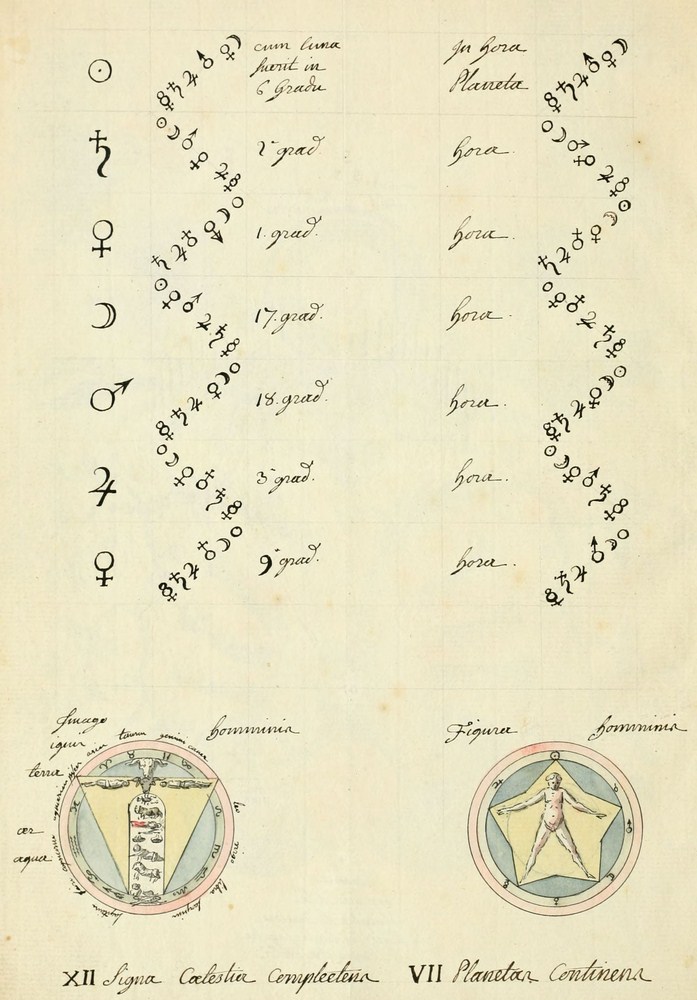 ☉ cum luna In hora
fuerit in Planeta
6 Gradu
♄ 2 grad hora.
♀ 1. grad. hora.
☽ 17. grad. hora.
♂ 18. grad. hora.
♃ 3 grad. hora.
♀ 9 grad. hora.
Imago homminis
ignis
aries taurus gemini cancer
terra
aer
aqua
leo
virgo
libra
Figura homminis
XII Signa Cœlestia Complectens VII Planetas Continens